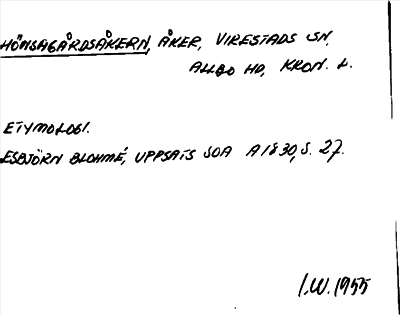 HÖNSAGÅRDSÅKERN, ÅKER, VIRESTADS SN,
ALLBO HD, KRON. L.
ETYMOLOGI.
ESBJÖRN BLOHMÉ, UPPSATS SOA A1830, S. 27.
I.W. 1955